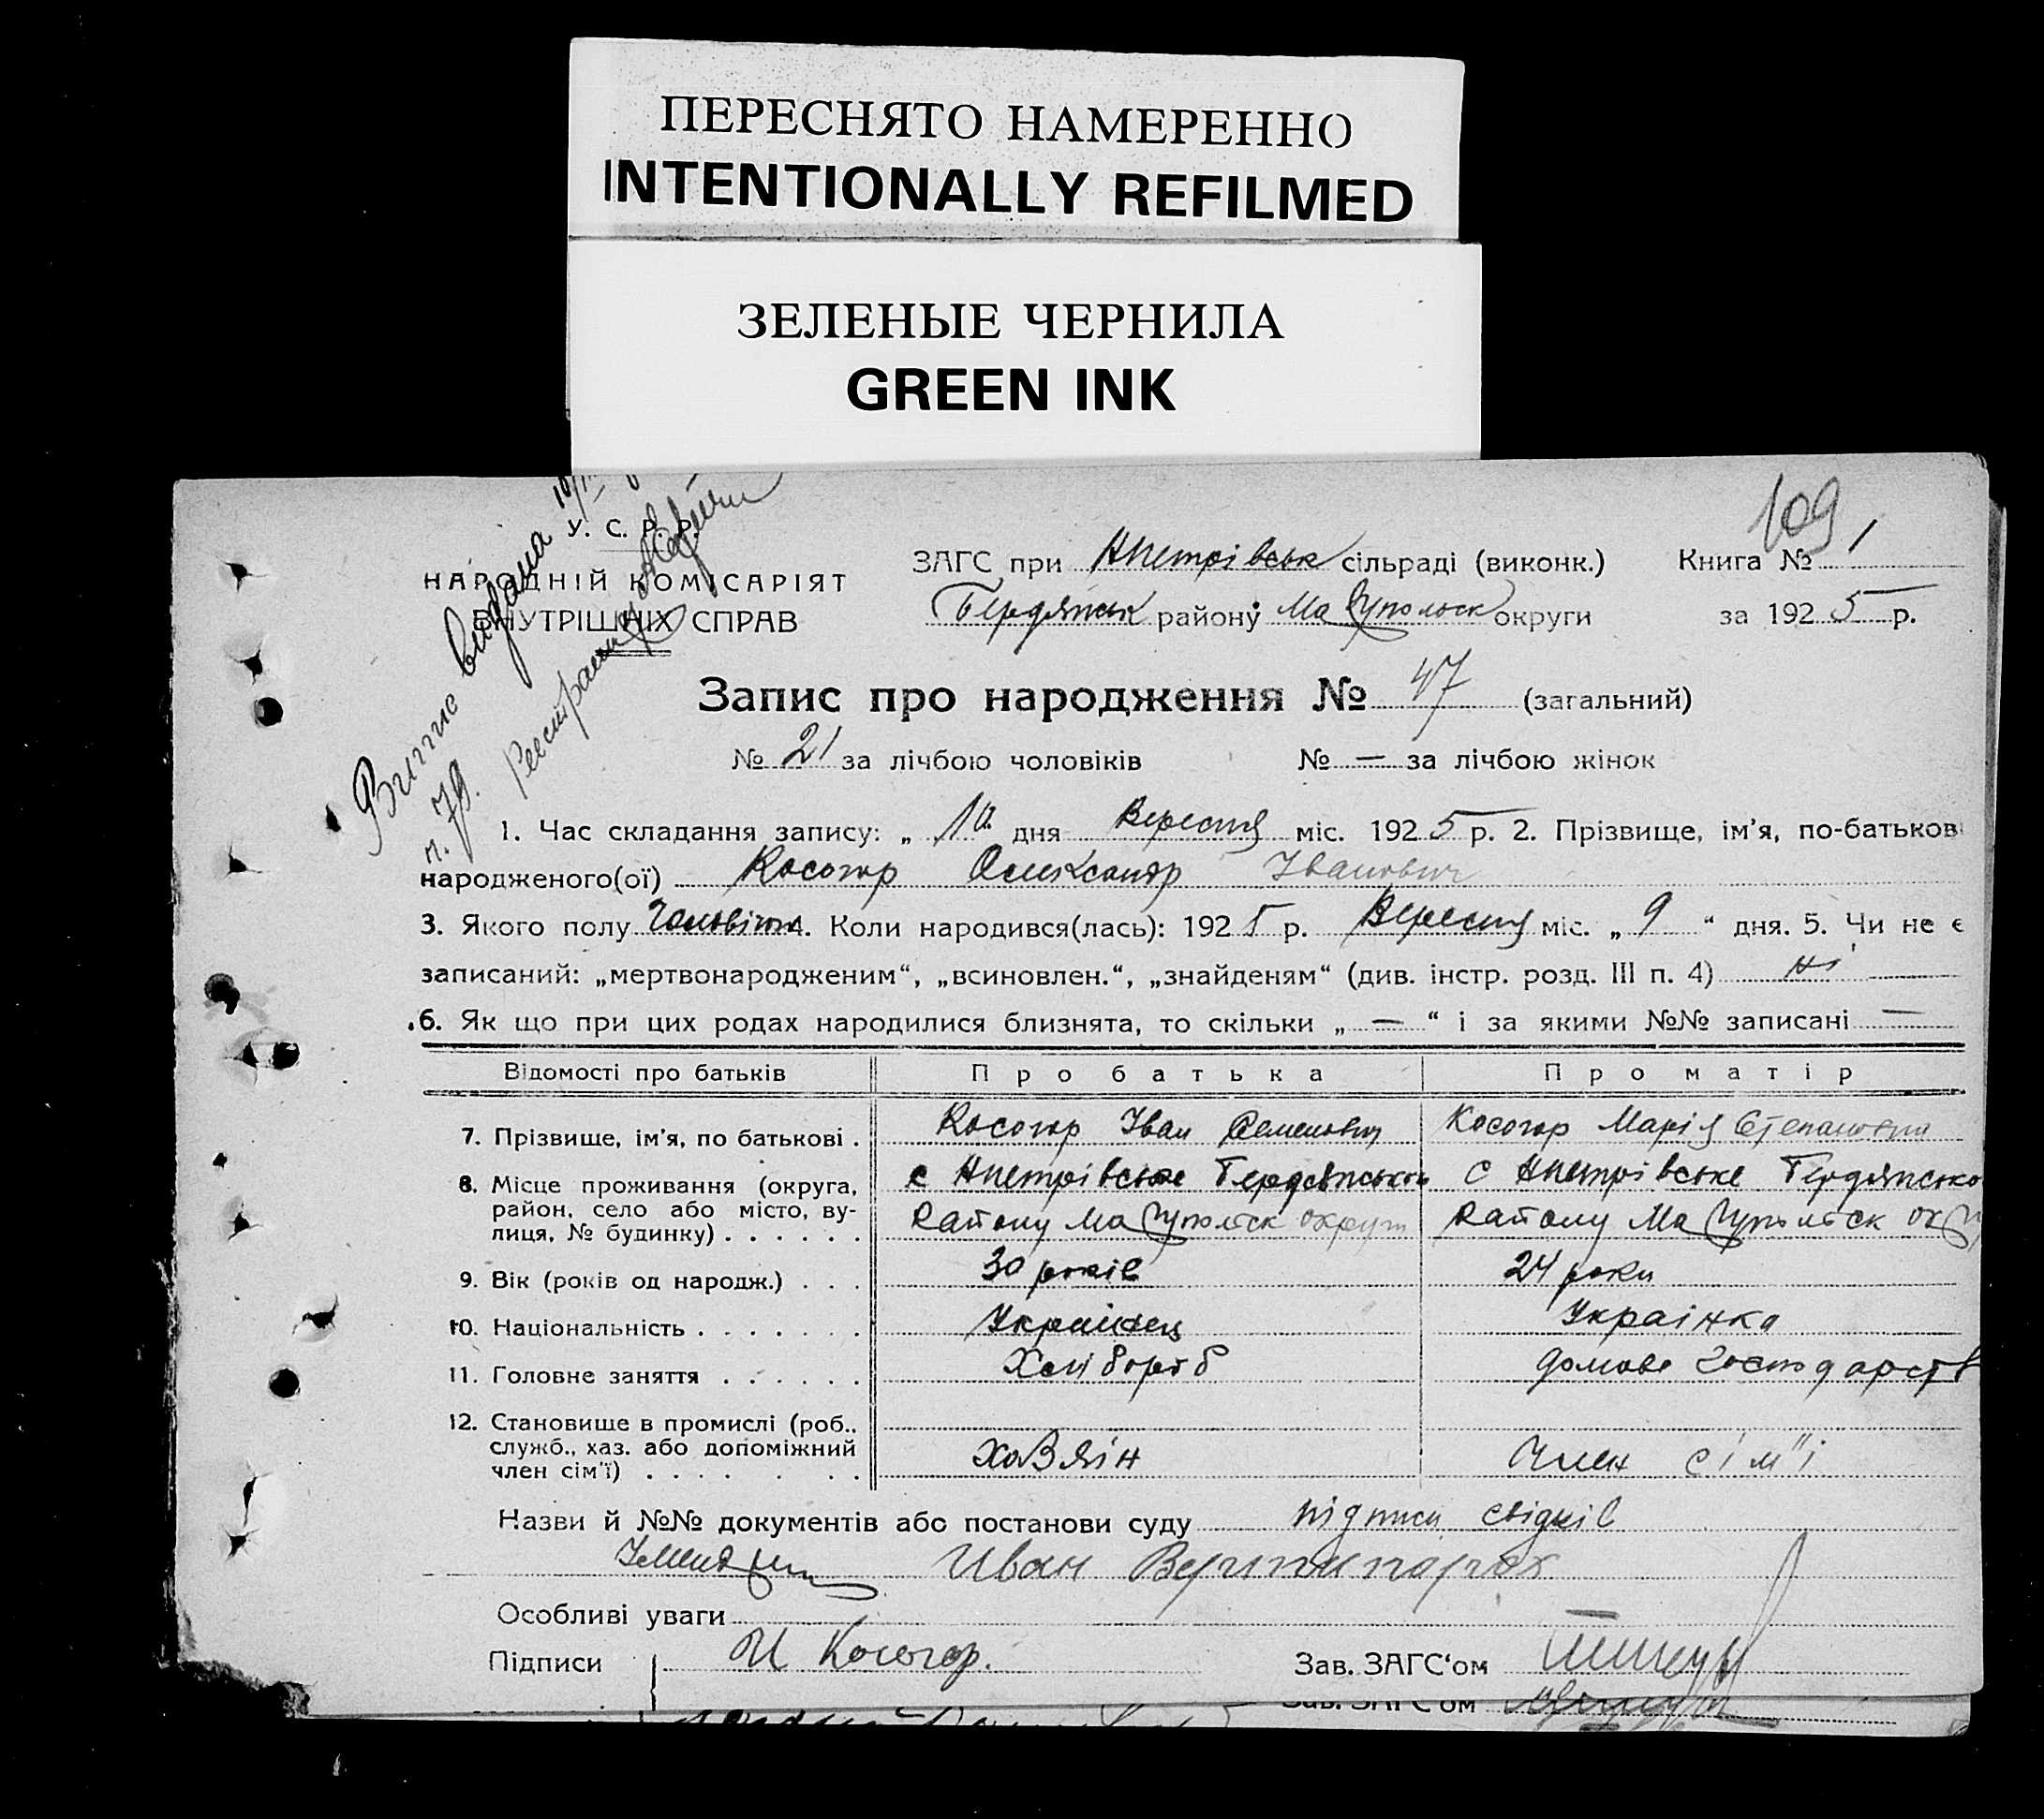 ПЕРЕСНЯТО НАМЕРЕННО
INTENTIONALLY REFILMED
ЗЕЛЕНЫЕ ЧЕРНИЛА
GREEN INK
109
У. С. Р. Р.
НАРОДНІЙ КОМІСАРІЯТ
ВНУТРІШНІХ СПРАВ
Випис видана
ЗАГС при Нпетрівськ сільраді (виконк.) Книга № 1
Бердянськ району Маріупольск округи за 1925 р.
Запис про народження № 47 (загальний)
№ 21 за лічбою чоловіків № — за лічбою жінок
1. Час складання запису: „ 10 дня Вересня міс. 1925 р. 2. Прізвище, ім’я, по-батькові
народженого(ої) Косогор Олександр Іванович
3. Якого полу Чоловіч 4. Коли народився(лась): 1925 р. Вересня міс. „ 9 “ дня. 5. Чи не є
записаний: „мертвонародженим“, „всиновлен.“, „знайденям“ (див. інстр. розд. III п. 4) ні
6. Як що при цих родах народилися близнята, то скільки „ — “ і за якими №№ записані —
Відомості про батьків Про батька Про матір
7. Прізвище, ім’я, по батькові . Косогор Іван Семенович Косогор Марія Степановна
8. Місце проживання (округа, с Нпетрівське Бердянського с Нпетрівське Бердянсько
район, село або місто, ву-
лиця, № будинку) . . . . . . Району Маріупольск округи Району Маріупольск окр
9. Вік (років од народж.) . . . 30 років 24 роки
10. Національність . . . . . . . Украінец Украінка
11. Головне заняття . . . . . . Хлібороб домове господарств
12. Становище в промислі (роб.,
служб., хаз. або допоміжний
член сім’ї) . . . . . . . Хазяін Член сім"і
Назви й №№ документів або постанови суду підписи свідків
Иван
Особливі уваги —
Підписи И Косогор. Зав. ЗАГС‘ом
Зав. ЗАГС‘ом